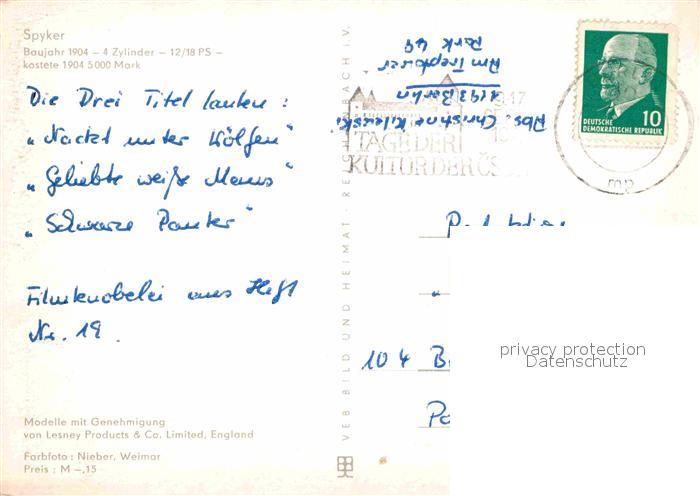 Spyker
Baujahr 1904 – 4 Zylinder – 12/18 PS –
kostete 1904 5000 Mark
Die Drei Titel lauten :
„Nackt unter Wölfen"
„Geliebte weiße Maus"
„Schwarze Panter"
Filmknobelei aus Heft
Nr. 19.
Modelle mit Genehmigung
von Lesney Products & Co. Limited, England
Farbfoto : Nieber, Weimar
Preis : M –,15
VEB BILD UND HEIMAT · REICHENBACH i. V.
Abs. Christine
1193 Berlin
Am Treptower
Park 49
TAGE DER
KULTUR DER ČS
DEUTSCHE
DEMOKRATISCHE REPUBLIK
10
104 B
privacy protection
Datenschutz